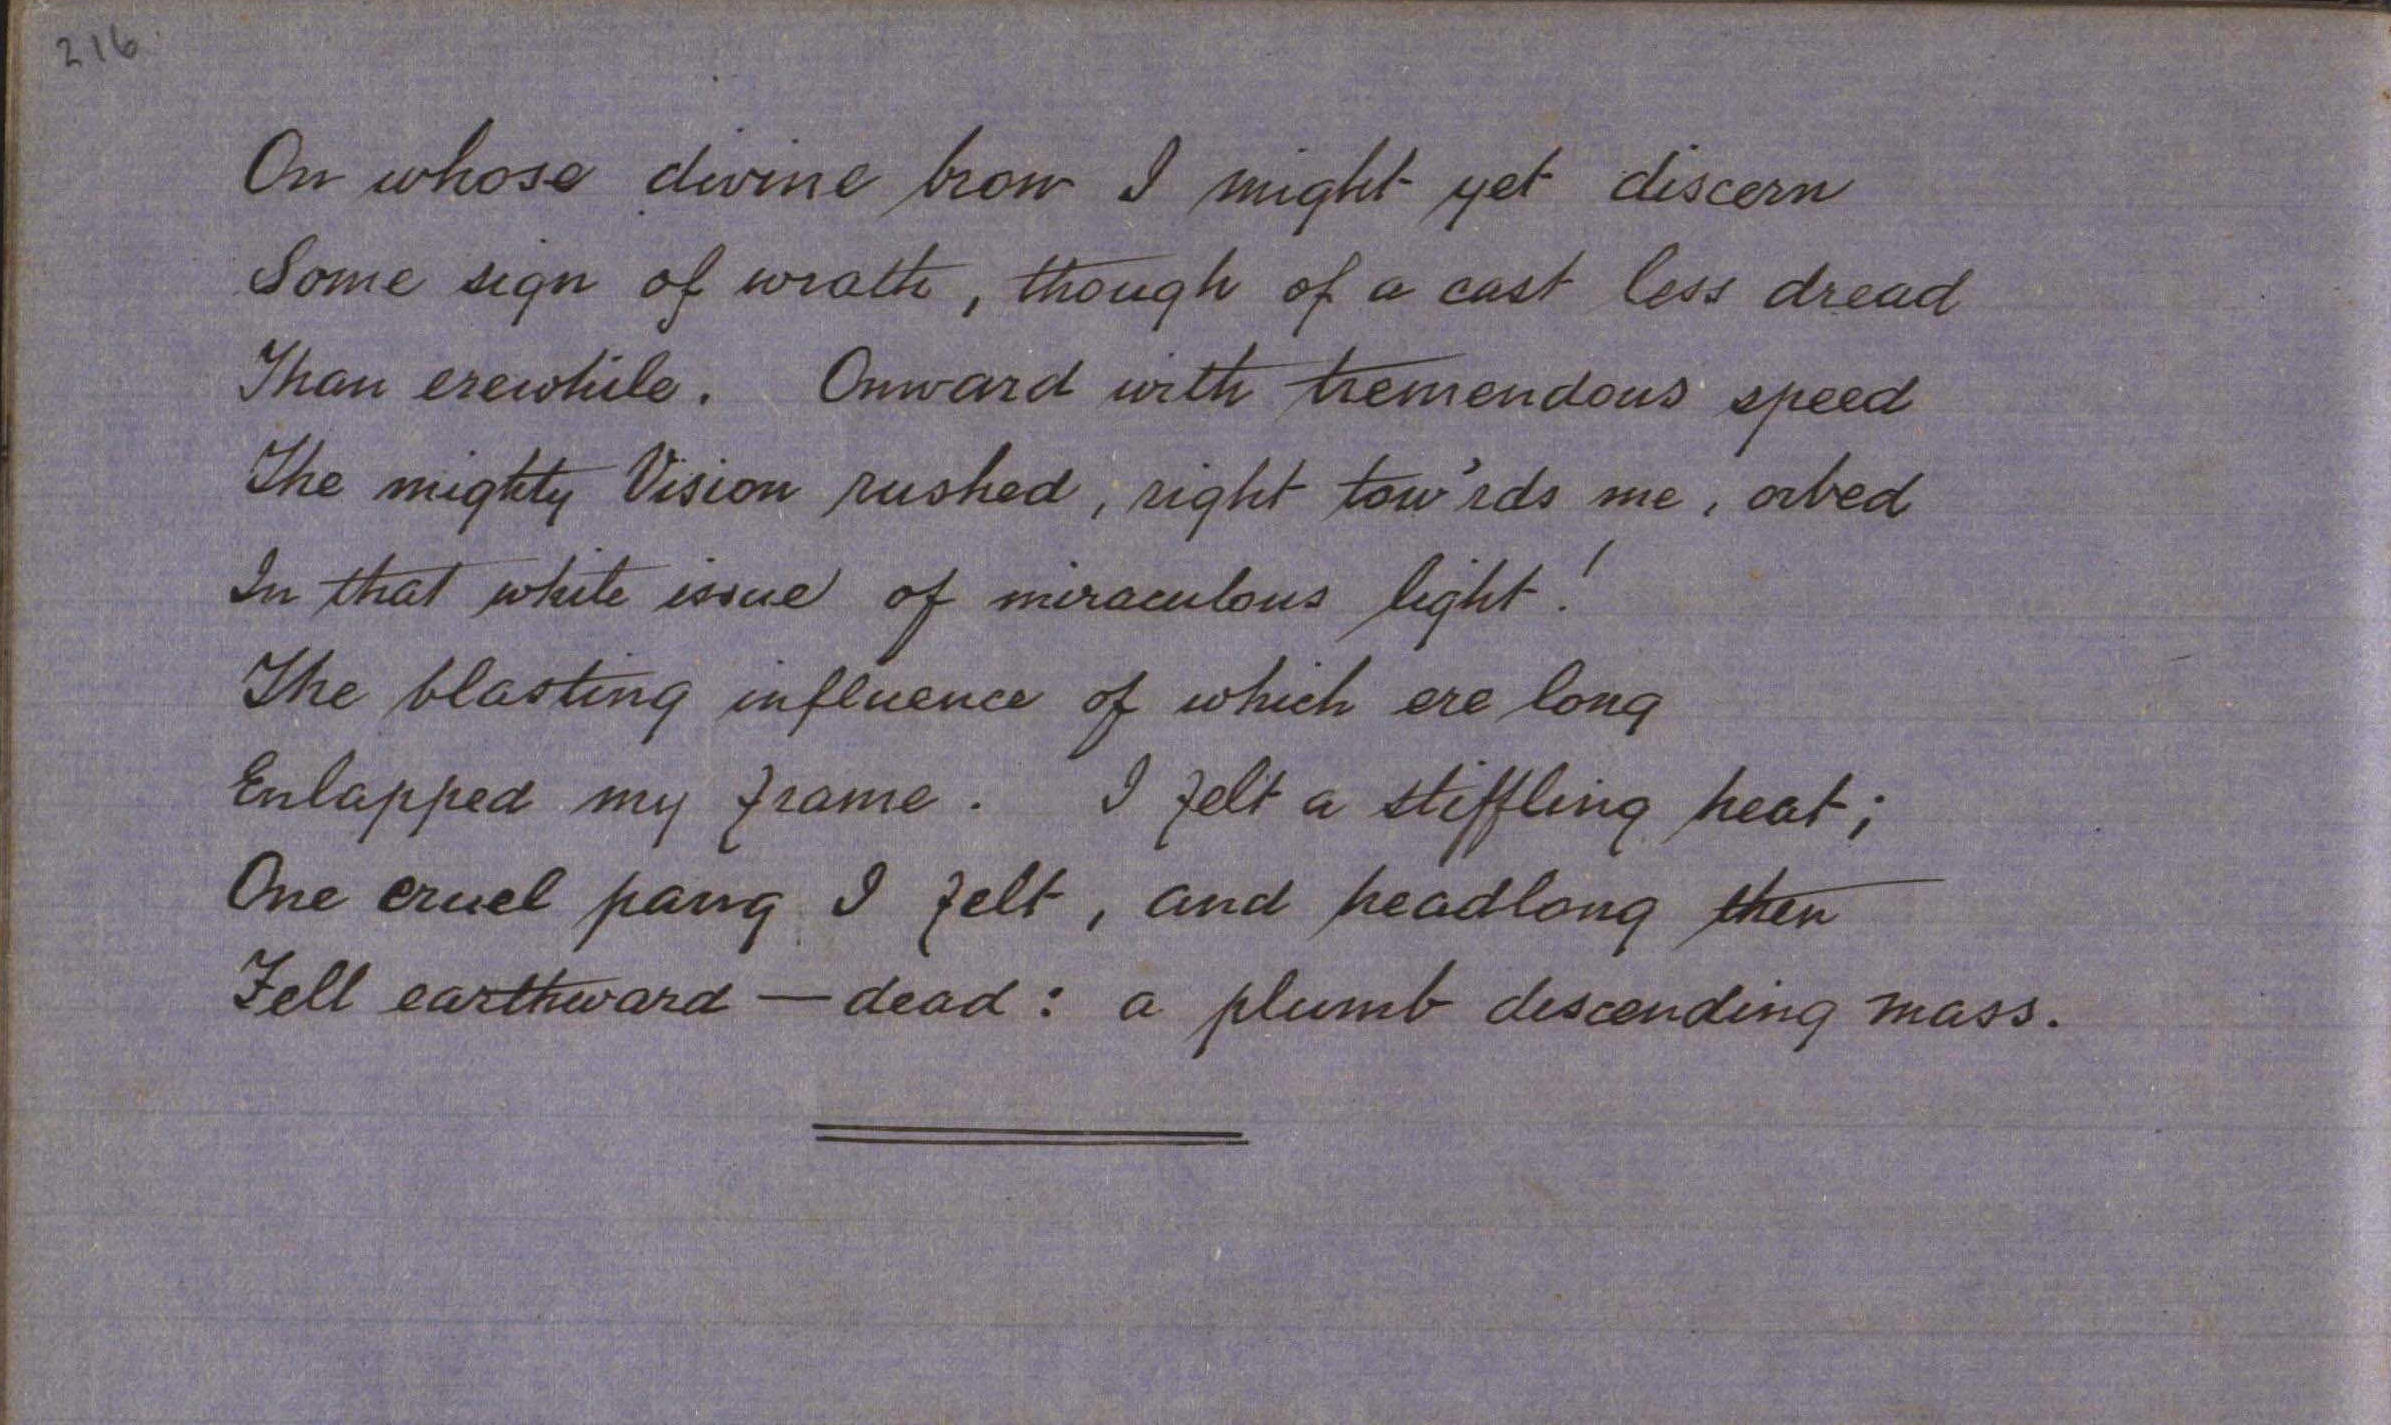 216
On whose divine brow I might yet discern
Some sign of wrath, though of a cast less dread
Than erewhile. Onward with tremendous speed
The mighty Vision rushed, right tow'rds me, orbed
In that white issue of miraculous light!
The blasting influence of which ere long
Enlapped my frame. I felt a stiffling heat;
One cruel pang I felt, and headlong then
Fell earthward — dead: a plumb descending mass.